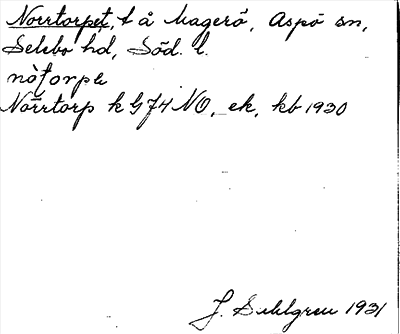 Norrtorpet, t å Magerö, Aspö sn,
Selebo hd, Söd. l.
nòṭorpe
Norrtorp k G74 NO, ek, kb 1930
J. Sahlgren 1931